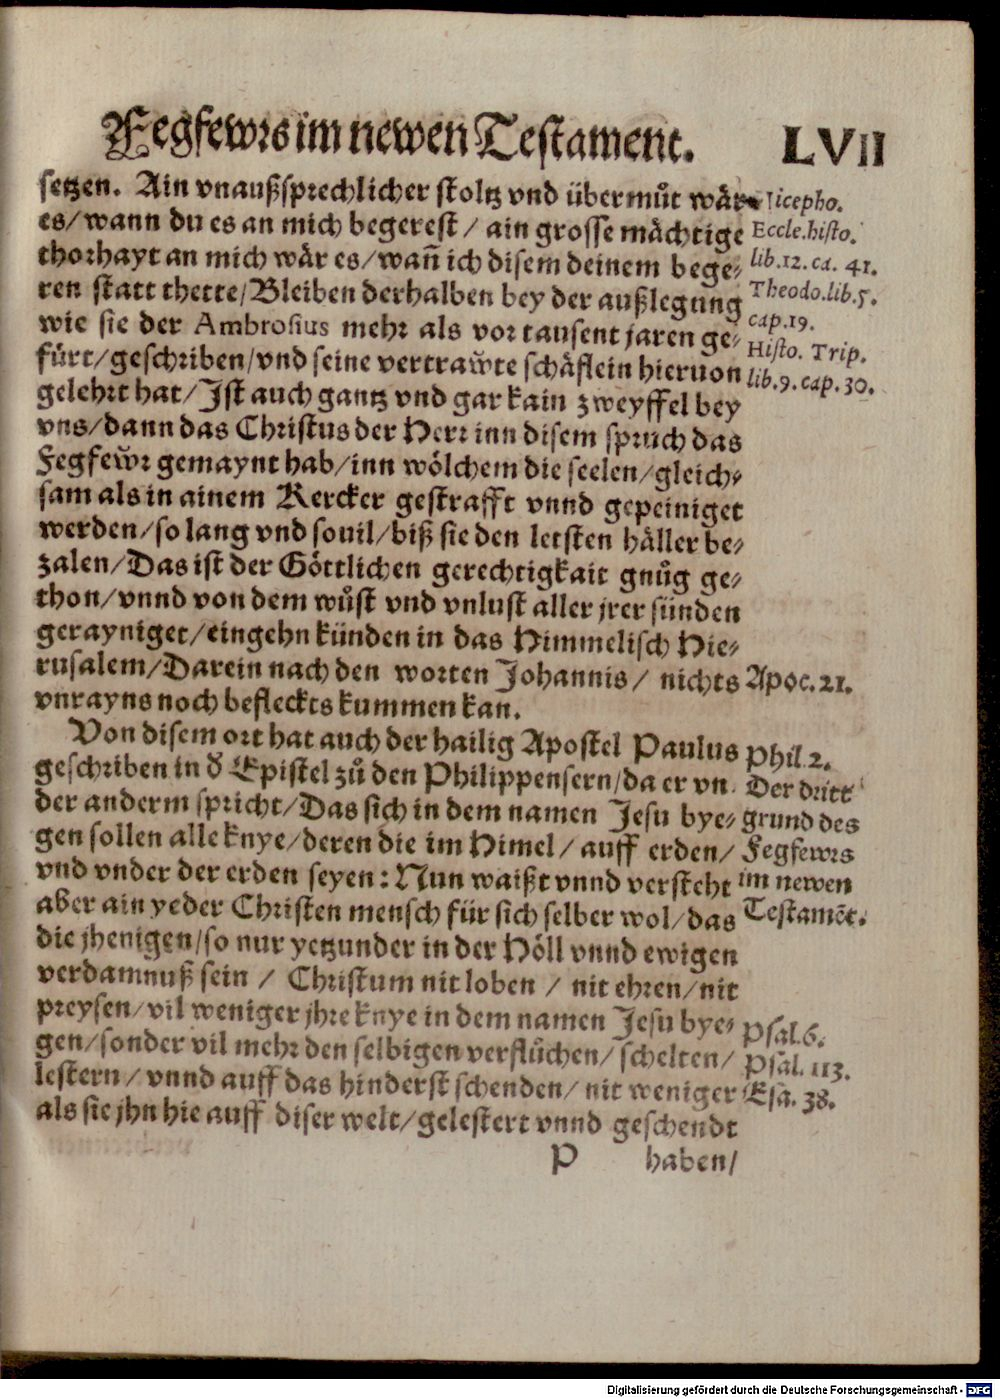 Fegfewrs im newen Testament. LVII
setzen. Ain vnaußsprechlicher stoltz vnd übermůt wär
es/ wann du es an mich begerest / ain grosse mächtige
thorhayt an mich wär es/ wañ ich disem deinem bege-
ren statt thette/ Bleiben derhalben bey der außlegung
wie sie der Ambrosius mehr als vor tausent jaren ge-
fürt/ geschriben/ vnd seine vertraẘte schäflein hieruon
gelehrt hat/ Jst auch gantz vnd gar kain zweyffel bey
vns/ dann das Christus der Herr inn disem spruch das
Fegfeẘr gemaynt hab/ inn wölchem die seelen/ gleich-
sam als in ainem Kercker gestrafft vnnd gepeiniget
werden/ so lang vnd souil/ biß sie den letsten häller be-
zalen/ Das ist der Göttlichen gerechtigkait gnůg ge-
thon/ vnnd von dem wůst vnd vnlust aller jrer sünden
gerayniget/ eingehn künden in das Himmelisch Hie-
rusalem/ Darein nach den worten Johannis / nichts
vnrayns noch beflecktes kummen kan.
Von disem ort hat auch der hailig Apostel Paulus
geschriben in d̕ Epistel zů den Philippensern/ da er vn-
der anderm spricht/ Das sich in dem namen Jesu bye-
gen sollen alle knye/ deren die im Himel / auff erden/
vnd vnder der erden seyen: Nun waißt vnnd versteht
aber ain yeder Christen mensch für sich selber wol/ das
die jhenigen/ so nur yetzunder in der Höll vnnd ewigen
verdamnuß sein / Christum nit loben / nit ehren/ nit
preysen/ vil weniger jhre knye in dem namen Jesu bye-
gen/ sonder vil mehr den selbigen verflůchen/ schelten/
lestern/ vnnd auff das hinderst schenden/ nit weniger
als sie jhn hie auff diser welt/ gelestert vnnd geschendt
P haben/
Nicepho.
Eccle. histo.
lib. 12. ca. 41.
Theodo. lib. 5.
cap. 19.
Histo. Trip.
lib. 9. cap. 30.
Apoc. 21.
Phil 2.
Der dritt
grund des
Fegfewrs
im newen
Testamēt.
Psal. 6.
Psal. 113.
Esa. 38.
Digitalisierung gefördert durch die Deutsche Forschungsgemeinschaft - DFG